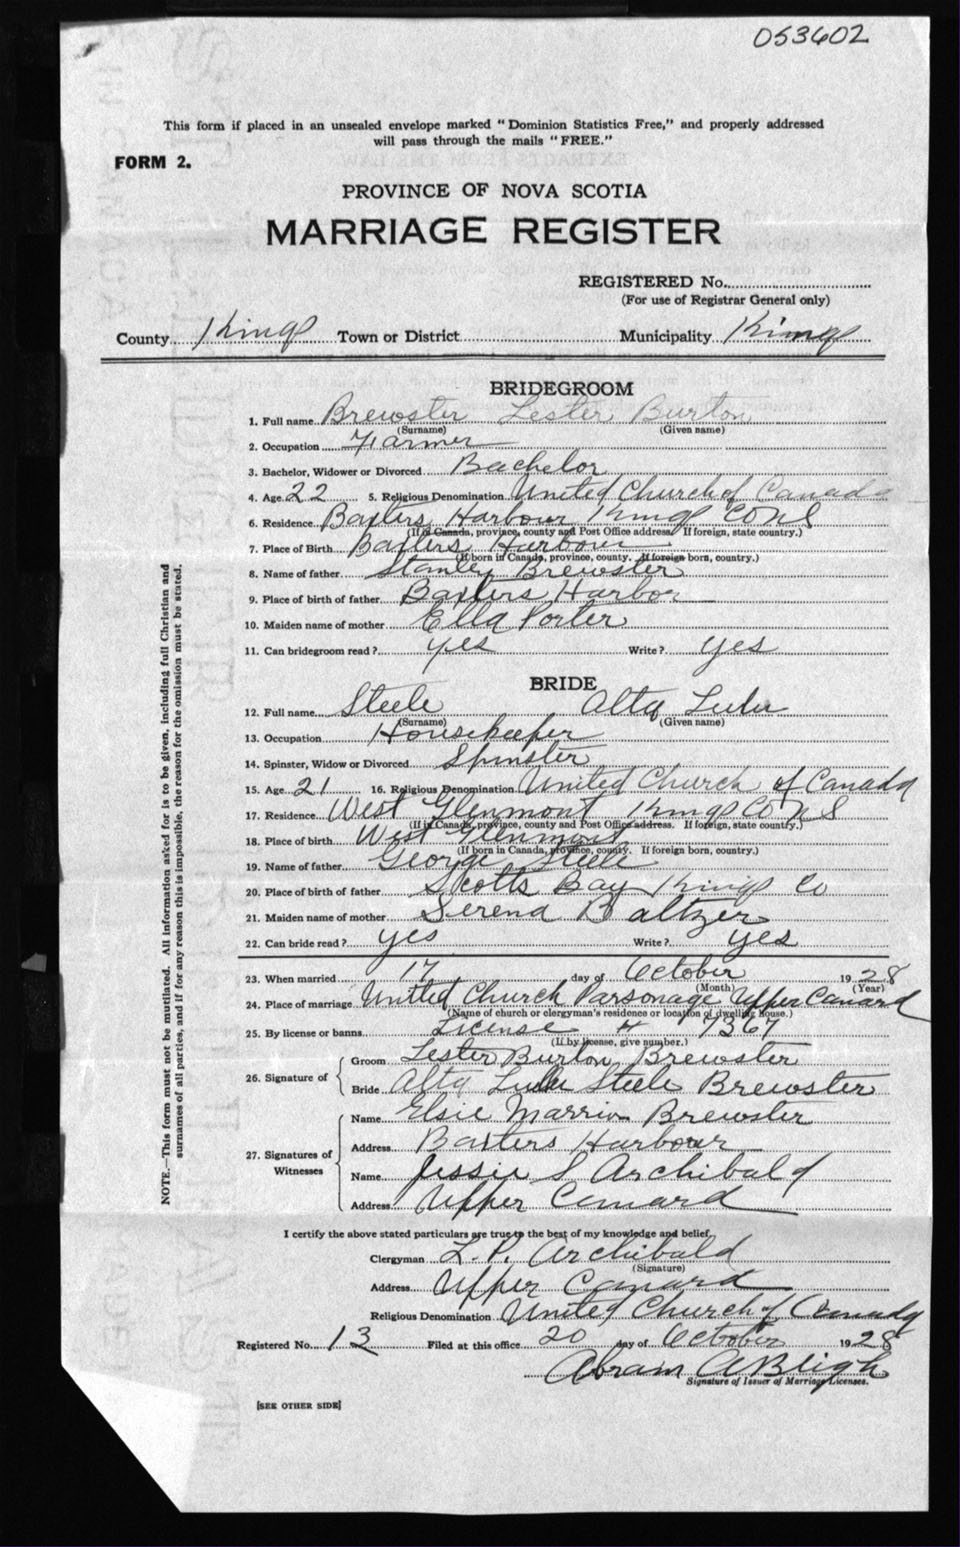 053602
This form if placed in an unsealed envelope marked "Dominion Statistics Free," and properly addressed
will pass through the mails "FREE."
FORM 2.
PROVINCE OF NOVA SCOTIA
MARRIAGE REGISTER
REGISTERED No.
(For use of Registrar General only)
County Kings Town or District Municipality Kings
BRIDEGROOM
1. Full name Brewster Lester Burton
(Surname) (Given name)
2. Occupation Farmer
3. Bachelor, Widower or Divorced Bachelor
4. Age 22 5. Religious Denomination United Church of Canada
6. Residence Baxters Harbour Kings Co N S
(If in Canada, province, county and Post Office address. If foreign, state country.)
7. Place of Birth Baxters Harbour
(If born in Canada, province, county. If foreign born, country.)
8. Name of father Stanley Brewster
9. Place of birth of father Baxters Harbor
10. Maiden name of mother Ella Porter
11. Can bridegroom read? yes Write? yes
BRIDE
12. Full name Steele Alta Lulu
(Surname) (Given name)
13. Occupation Housekeeper
14. Spinster, Widow or Divorced Spinster
15. Age 21 16. Religious Denomination United Church of Canada
17. Residence West Glenmont Kings Co N S
(If in Canada, province, county and Post Office address. If foreign, state country.)
18. Place of birth West Glenmont
(If born in Canada, province, county. If foreign born, country.)
19. Name of father George Steele
20. Place of birth of father Scotts Bay Kings Co
21. Maiden name of mother Serena Baltzer
22. Can bride read? yes Write? yes
23. When married 17 day of October 1928
(Month) (Year)
24. Place of marriage United Church Parsonage Upper Canard
(Name of church or clergyman's residence or location of dwelling house.)
25. By license or banns License # 7367
(If by license, give number.)
26. Signature of Groom Lester Burton Brewster
Bride Alta Lulu Steele Brewster
27. Signatures of Witnesses
Name Elsie Marrion Brewster
Address Baxters Harbour
Name Jessie S Archibald
Address Upper Canard
I certify the above stated particulars are true to the best of my knowledge and belief.
Clergyman L. P. Archibald
(Signature)
Address Upper Canard
Religious Denomination United Church of Canada
Registered No. 13 Filed at this office 20 day of October 1928
Abram A Bleigh
Signature of Issuer of Marriage Licenses.
[SEE OTHER SIDE]
NOTE.—This form must not be mutilated. All information asked for is to be given, including full Christian and
surnames of all parties, and if for any reason this is impossible, the reason for the omission must be stated.